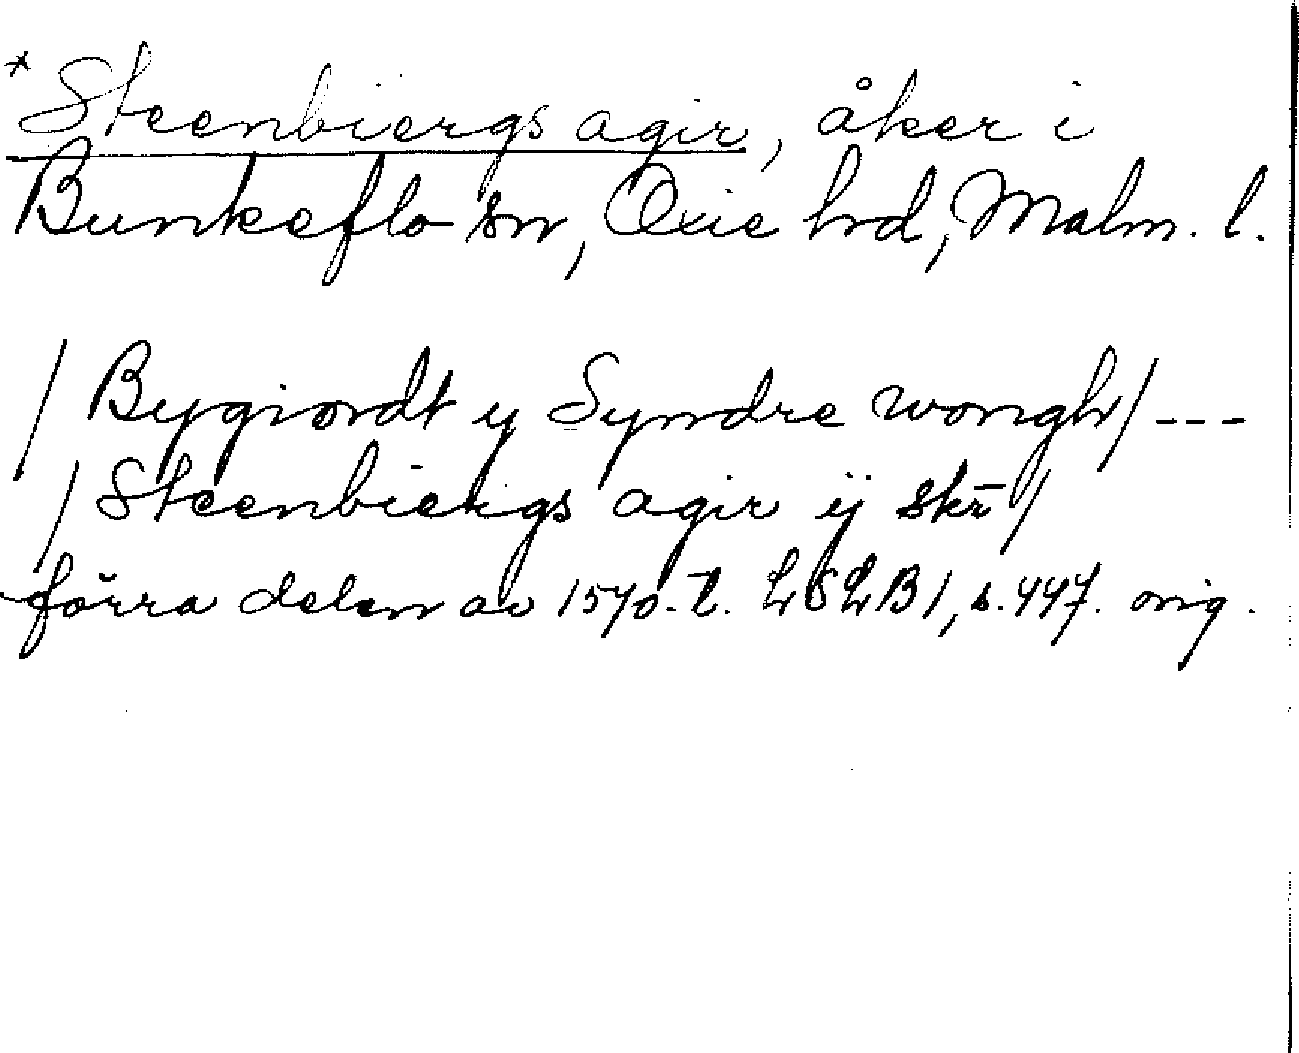 * Steenbiergs agir, åker i
Bunkeflo sn, Oxie hrd, Malm. l.
/ Bygiordt y Syndre wongh / ---
/ Steenbiergs agir ij skr̄ /
förra delen av 1570-t. LSLB 1, s. 447. orig.